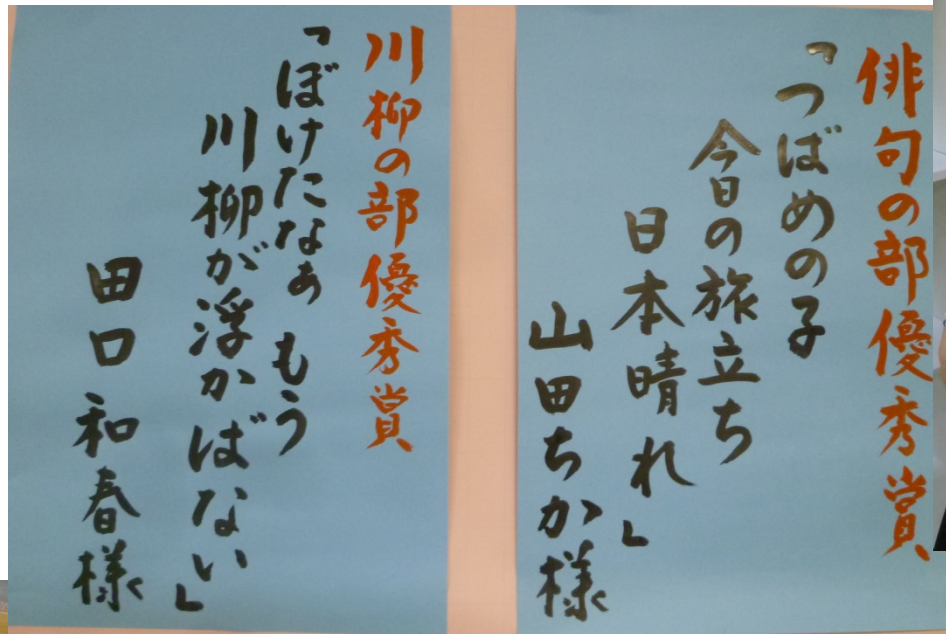 俳句の部優秀賞
「つばめの子
今日の旅立ち
日本晴れ」
山田ちか様
川柳の部優秀賞
「ぼけたなぁ もう
川柳が浮かばない」
田口和春様